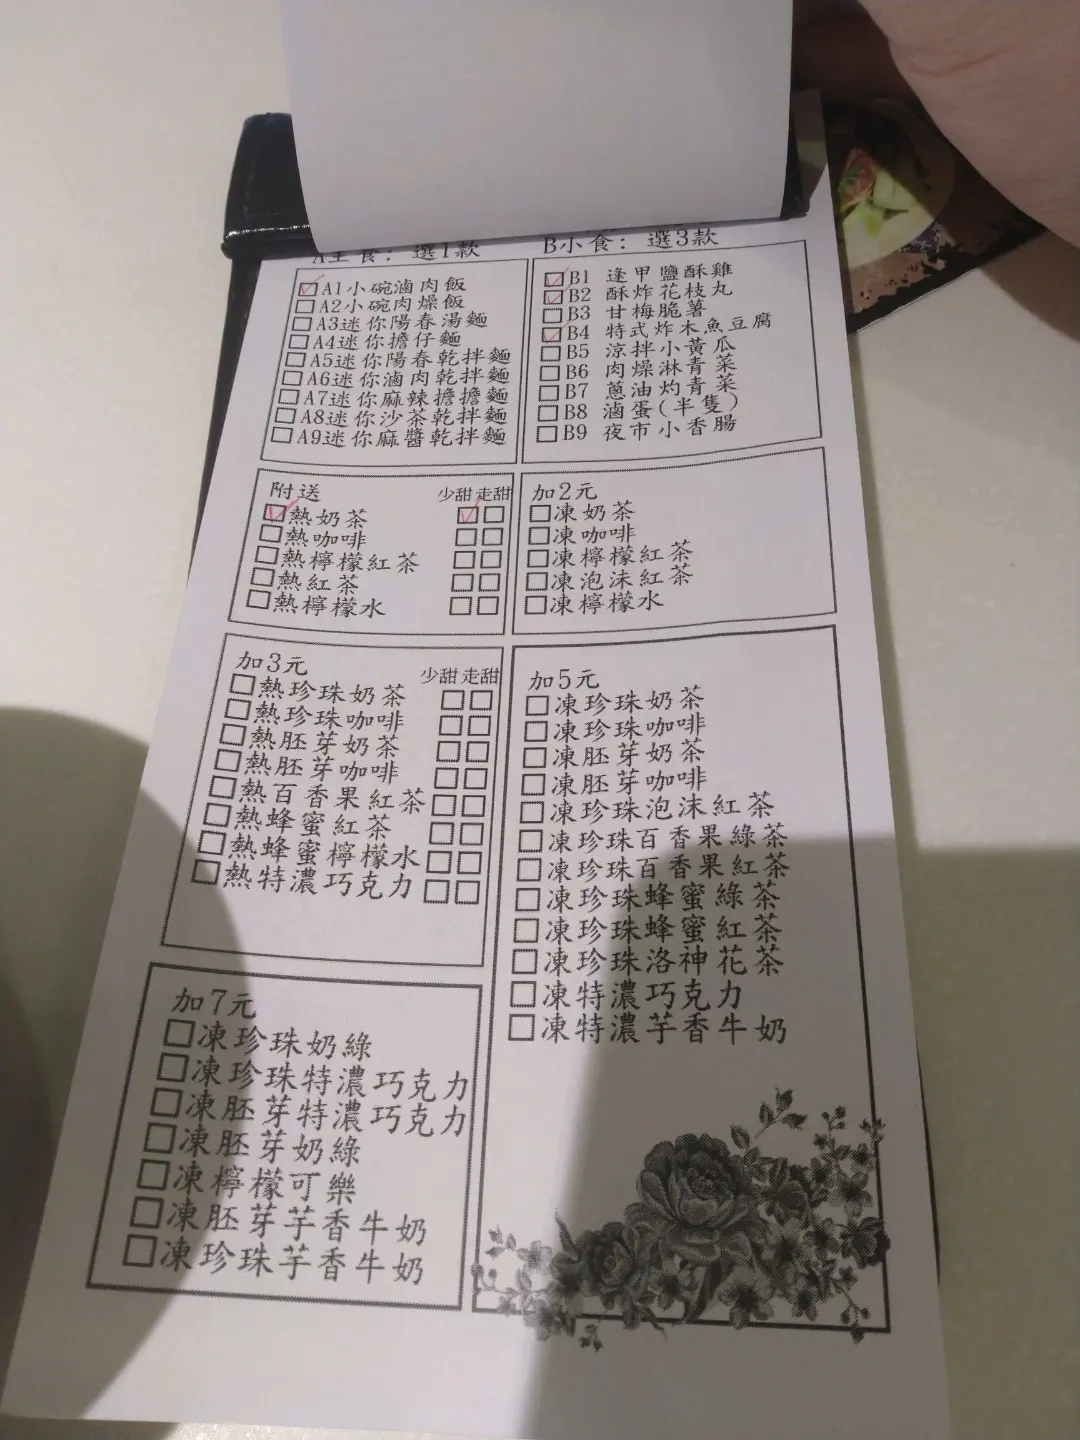 A主食：選1款
A1小碗滷肉飯
A2小碗肉燥飯
A3迷你陽春湯麵
A4迷你擔仔麵
A5迷你陽春乾拌麵
A6迷你滷肉乾拌麵
A7迷你麻辣擔擔麵
A8迷你沙茶乾拌麵
A9迷你麻醬乾拌麵
B小食：選3款
B1 逢甲鹽酥雞
B2 酥炸花枝丸
B3 甘梅脆薯
B4 特式炸木魚豆腐
B5 涼拌小黃瓜
B6 肉燥淋青菜
B7 蔥油灼青菜
B8 滷蛋(半隻)
B9 夜市小香腸
附送 少甜 走甜
熱奶茶
熱咖啡
熱檸檬紅茶
熱紅茶
熱檸檬水
加2元
凍奶茶
凍咖啡
凍檸檬紅茶
凍泡沫紅茶
凍檸檬水
加3元 少甜 走甜
熱珍珠奶茶
熱珍珠咖啡
熱胚芽奶茶
熱胚芽咖啡
熱百香果紅茶
熱蜂蜜紅茶
熱蜂蜜檸檬水
熱特濃巧克力
加5元
凍珍珠奶茶
凍珍珠咖啡
凍胚芽奶茶
凍胚芽咖啡
凍珍珠泡沫紅茶
凍珍珠百香果綠茶
凍珍珠百香果紅茶
凍珍珠蜂蜜綠茶
凍珍珠蜂蜜紅茶
凍珍珠洛神花茶
凍特濃巧克力
凍特濃芋香牛奶
加7元
凍珍珠奶綠
凍珍珠特濃巧克力
凍胚芽特濃巧克力
凍胚芽奶綠
凍檸檬可樂
凍胚芽芋香牛奶
凍珍珠芋香牛奶